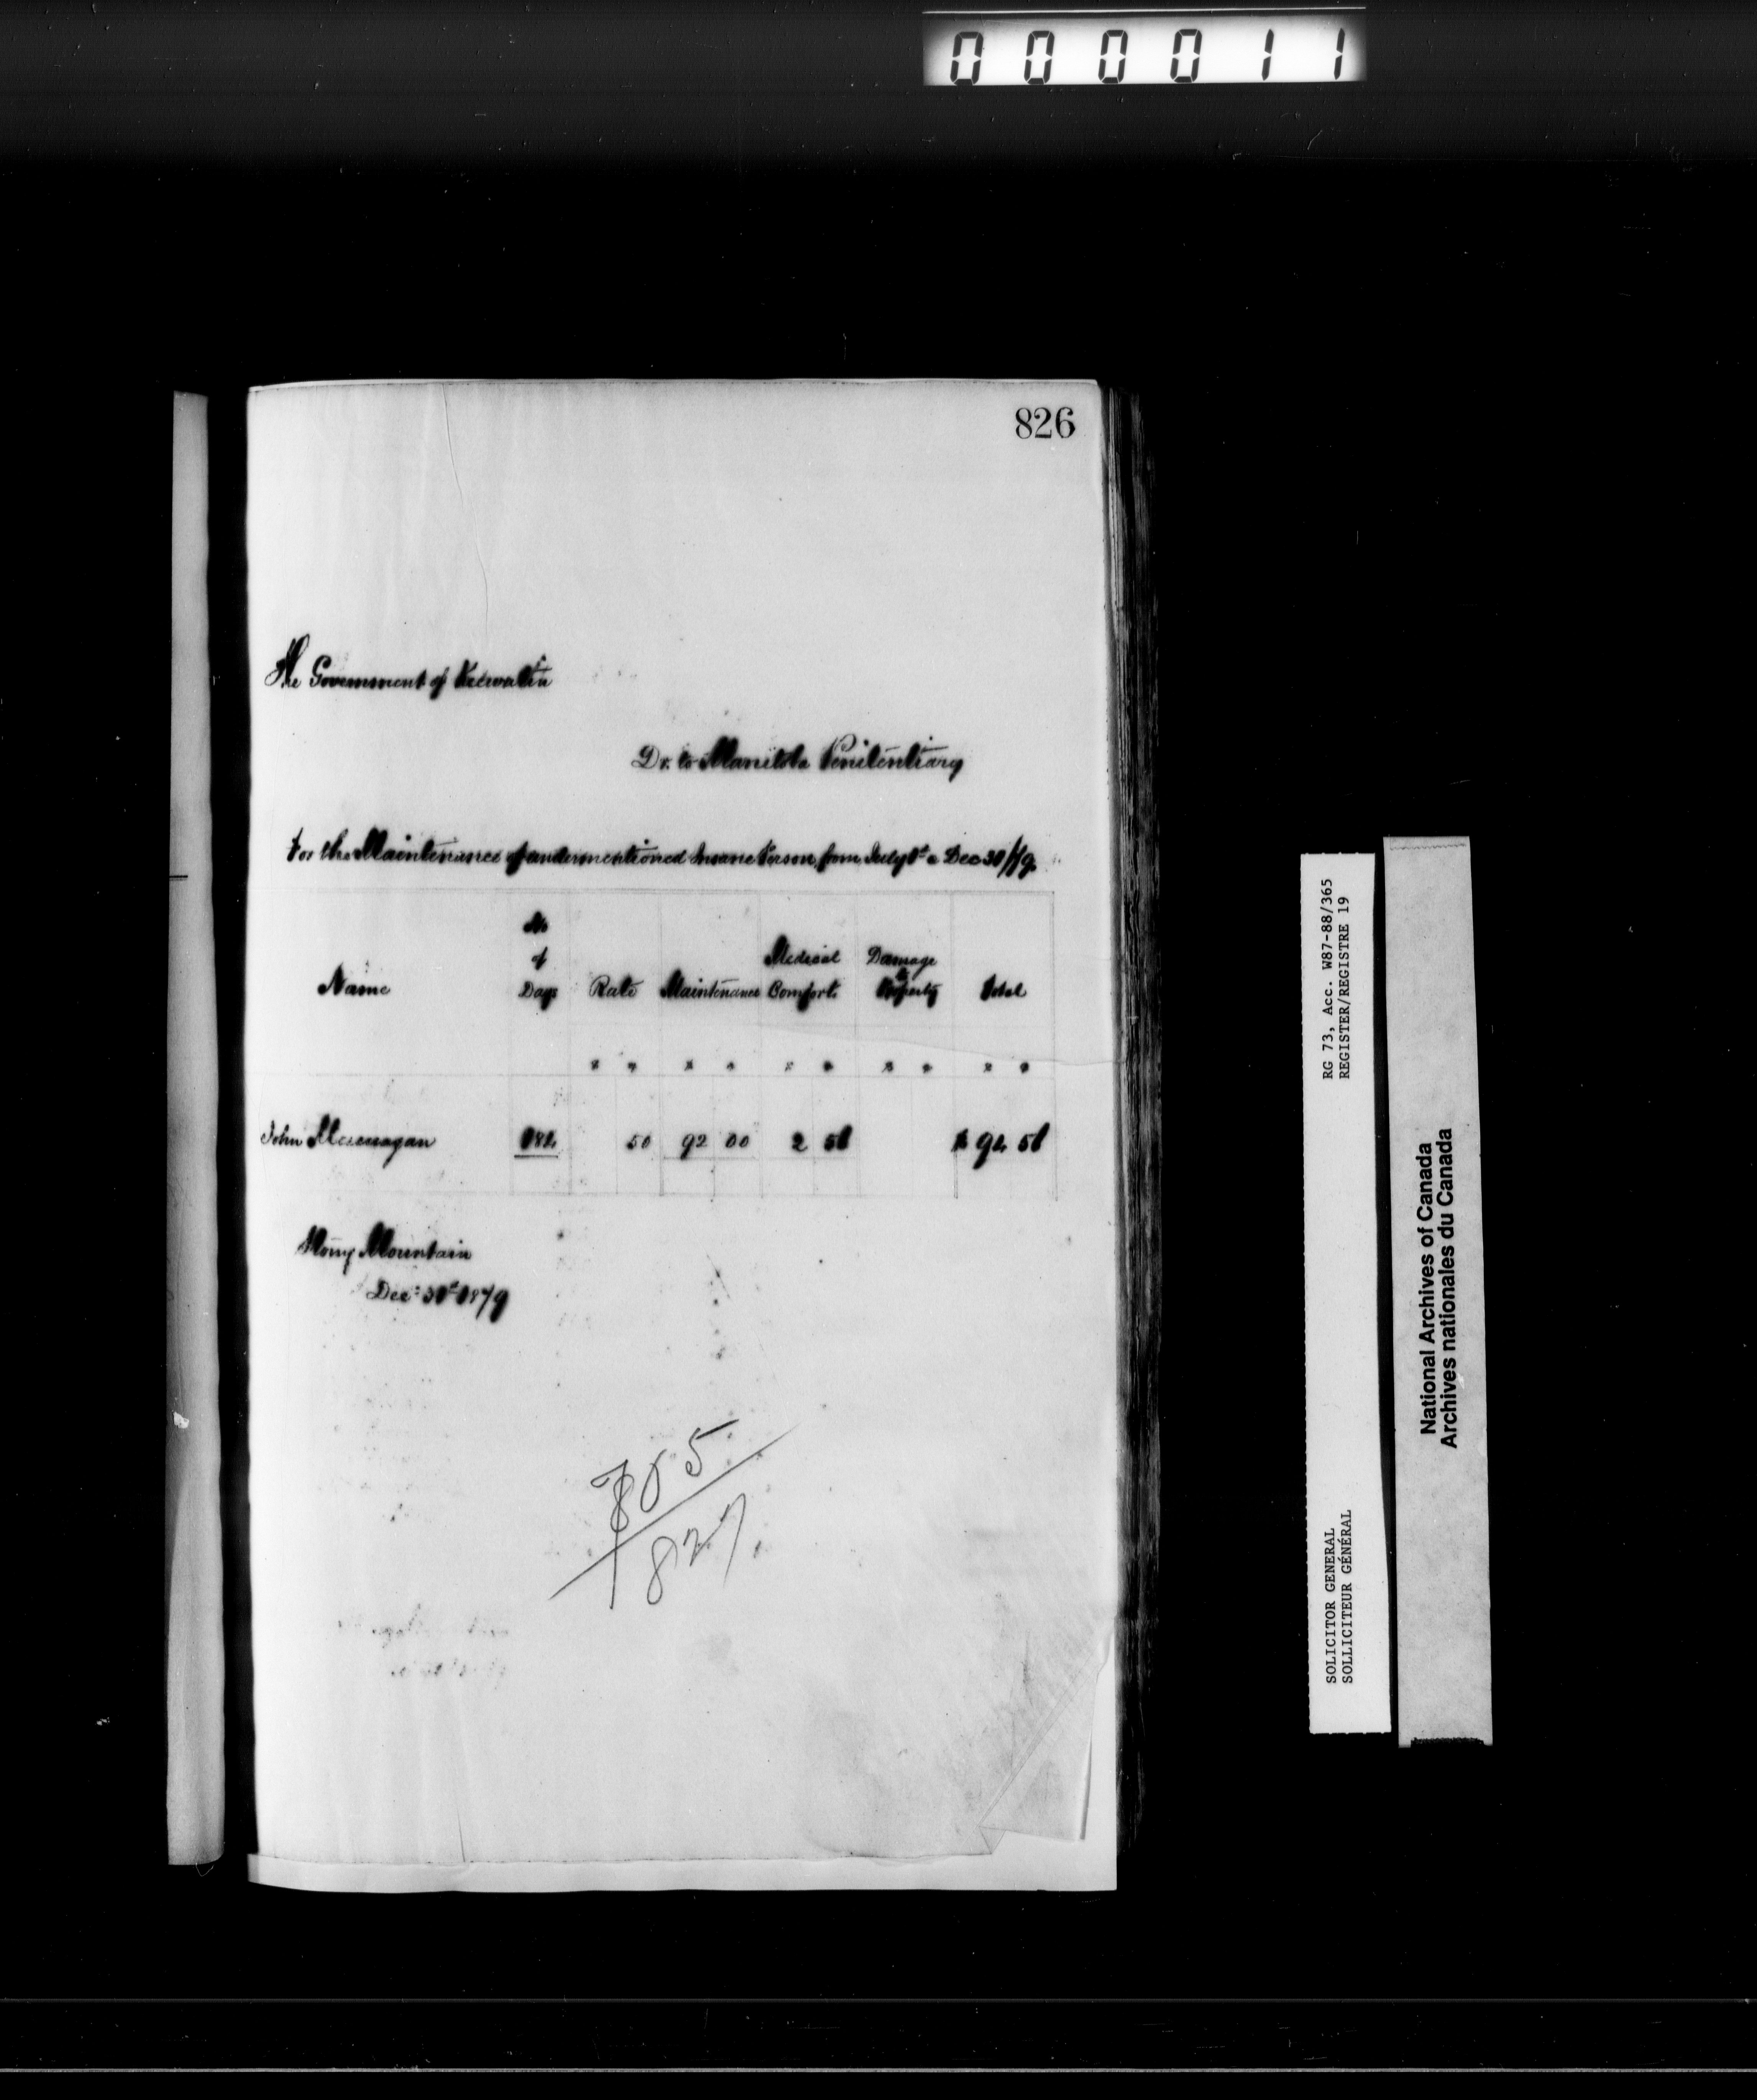 000011
826
The Government of Keewatin
Dr. to Manitoba Penitentiary
For the Maintenance of undermentioned Insane Person from July 1st to Dec 31/79
Name No of Days Rate Maintenance Medical Comforts Damage to Property Total
$ " $ " $ " $ " $ "
John 184 50 92 00 2 51 $ 94 51
Stony Mountain
Dec: 31st 1879
827
RG 73, Acc. W87-88/365
REGISTER/REGISTRE 19
SOLICITOR GENERAL
SOLLICITEUR GÉNÉRAL
National Archives of Canada
Archives nationales du Canada